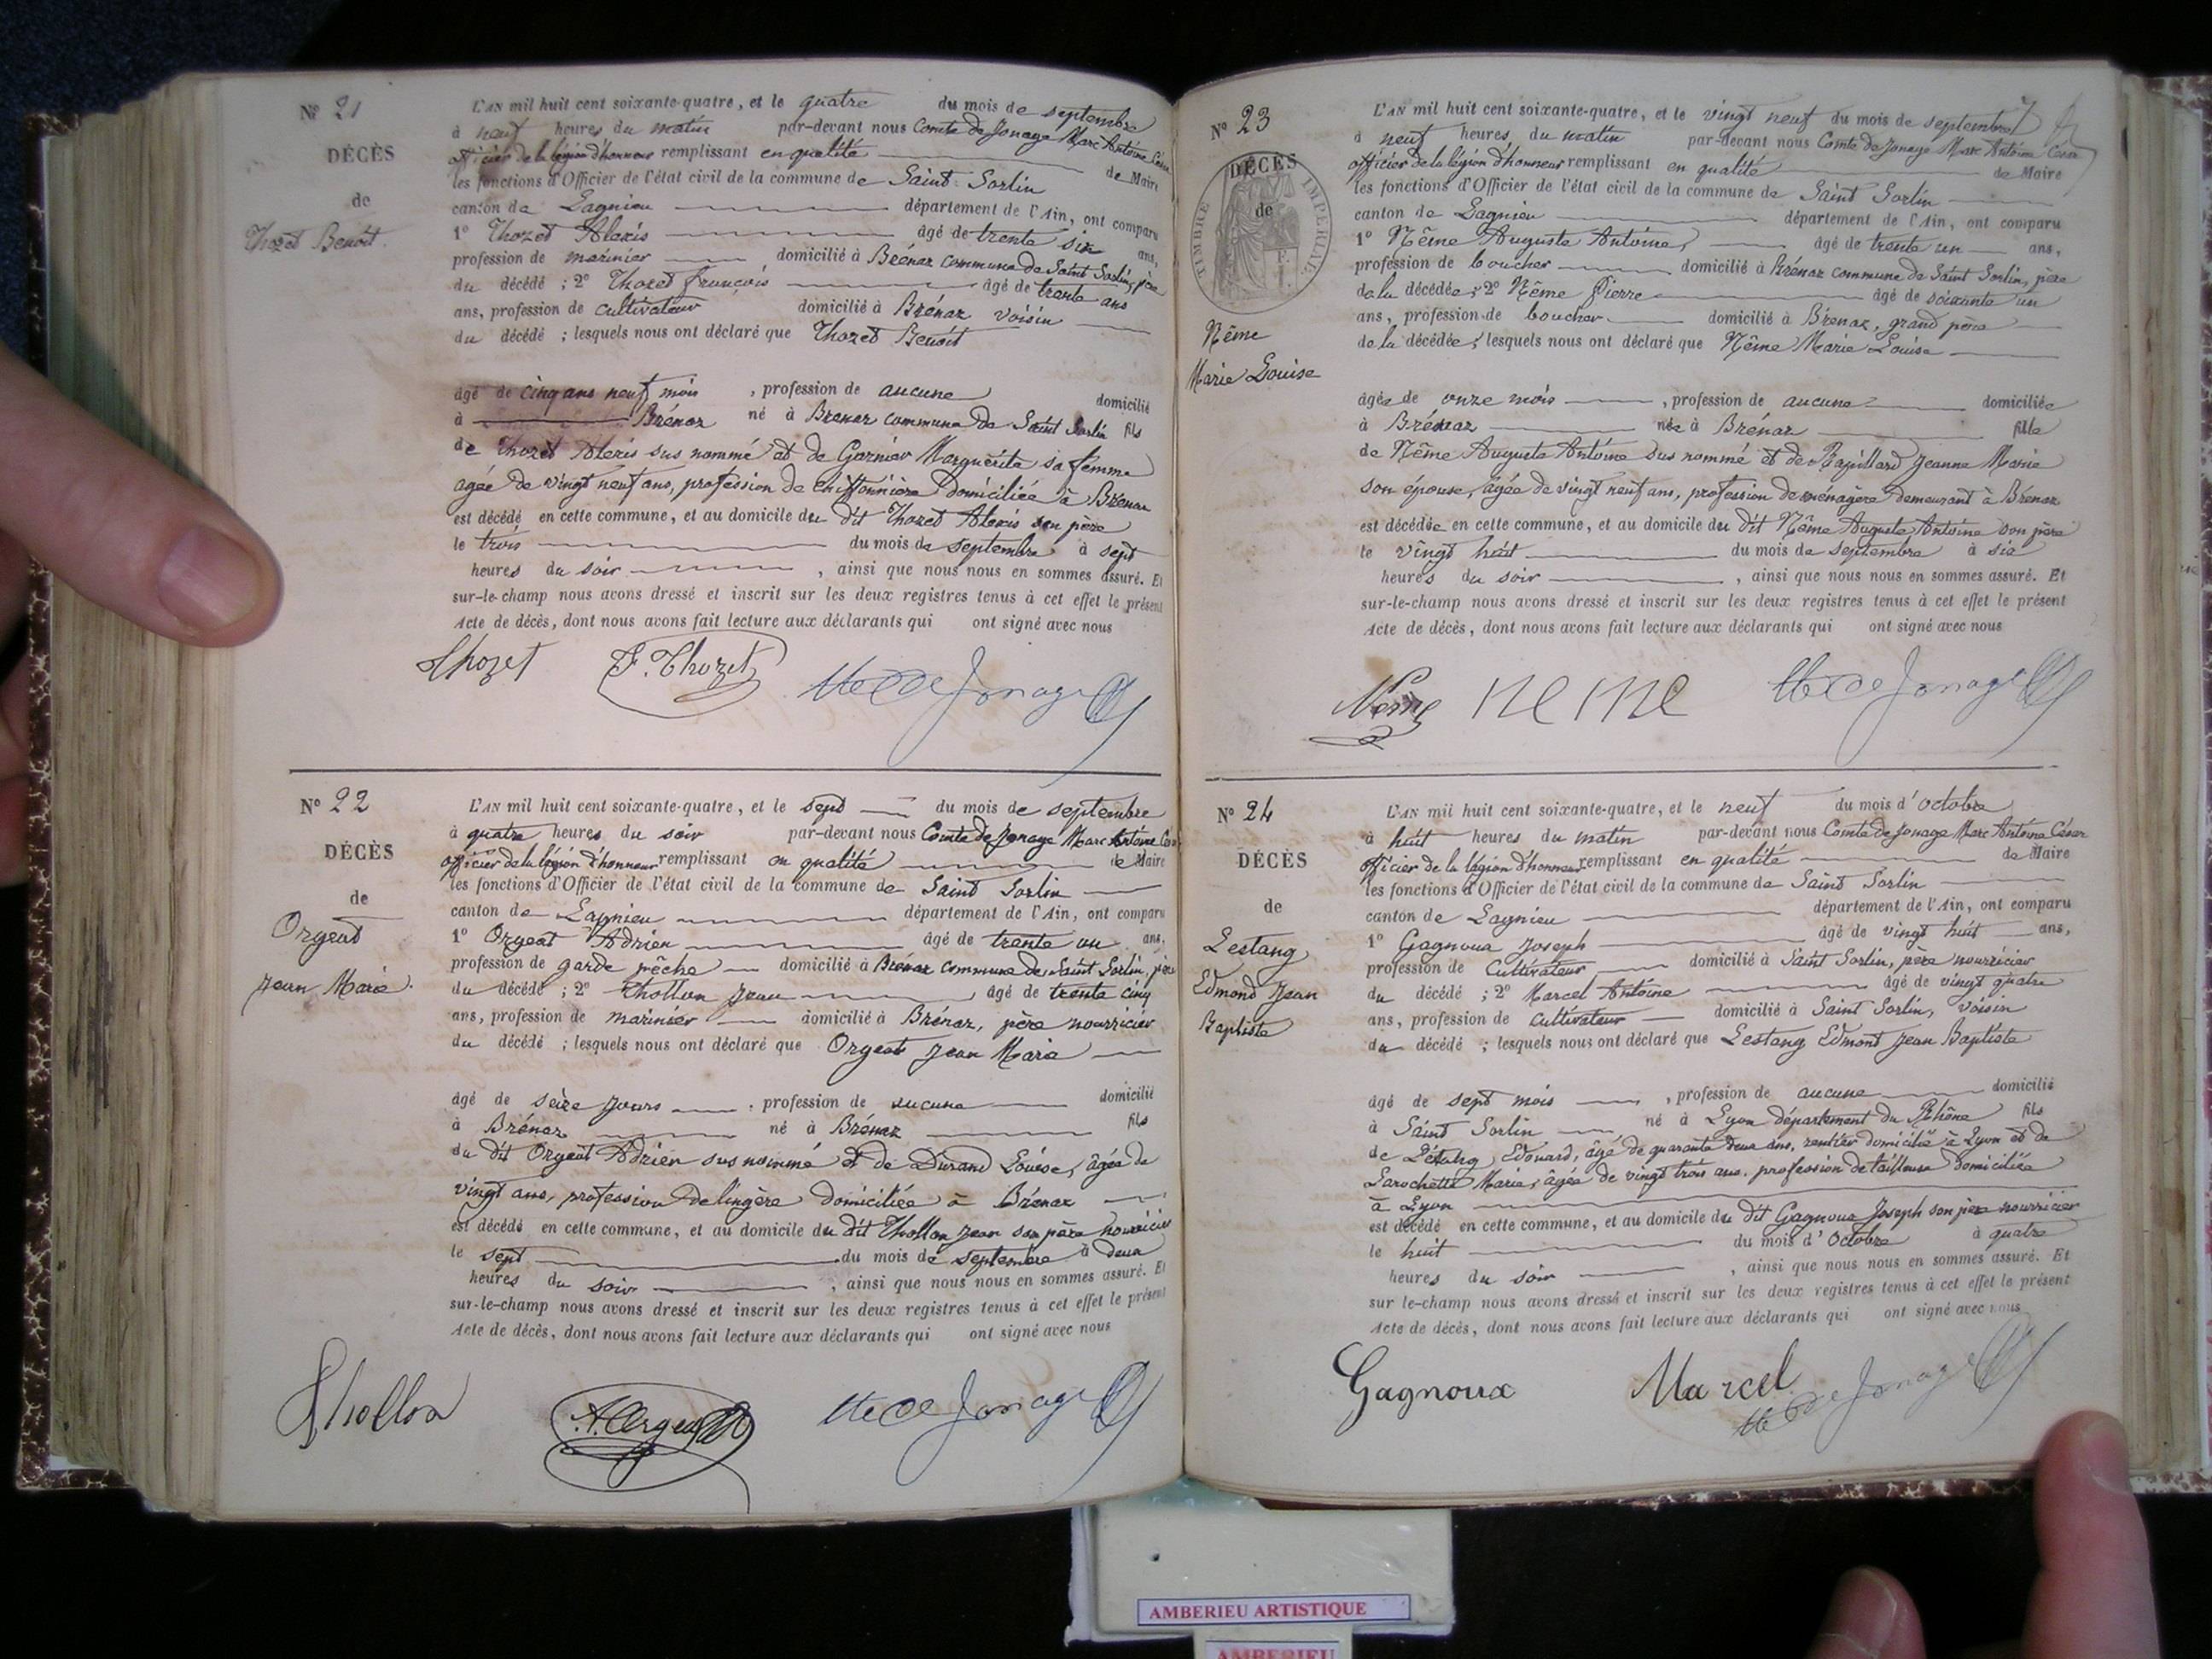 N° 21
DÉCÈS
de
Thozet Benoit.
L'AN mil huit cent soixante-quatre, et le quatre du mois de septembre
à neuf heures du matin par-devant nous Comte de Jonage Marc Antoine César
officier de la légion d'honneur remplissant en qualité de Maire
les fonctions d'Officier de l'état civil de la commune de Saint Sorlin
canton de Lagnieu département de l'Ain, ont comparu
1° Thozet Alexis âgé de trente six ans,
profession de marinier domicilié à Brénaz commune de Saint Sorlin, père
du décédé ; 2° Thozet François âgé de trente ans
ans, profession de cultivateur domicilié à Brénaz voisin
du décédé ; lesquels nous ont déclaré que Thozet Benoit
âgé de cinq ans neuf mois , profession de aucune domicilié
à Brénaz né à Brenaz commune de Saint Sorlin fils
de Thozet Alexis sus nommé et de Garnier Marguerite sa femme
agée de vingt neuf ans, profession de chiffonnière domiciliée à Brenaz
est décédé en cette commune, et au domicile du dit Thozet Alexis son père
le trois du mois de septembre à sept
heures du soir , ainsi que nous nous en sommes assuré. Et
sur-le-champ nous avons dressé et inscrit sur les deux registres tenus à cet effet le présent
Acte de décès, dont nous avons fait lecture aux déclarants qui ont signé avec nous
Thozet F. Thozet de Jonage
N° 22
DÉCÈS
de
Orgeat
Jean Marie.
L'AN mil huit cent soixante-quatre, et le sept du mois de septembre
à quatre heures du soir par-devant nous Comte de Jonage Marc Antoine César
officier de la légion d'honneur remplissant en qualité de Maire
les fonctions d'Officier de l'état civil de la commune de Saint Sorlin
canton de Lagnieu département de l'Ain, ont comparu
1° Orgeat Adrien âgé de trente un ans,
profession de garde pêche domicilié à Brénaz commune de Saint Sorlin, père
du décédé ; 2° Thollon Jean âgé de trente cinq
ans, profession de marinier domicilié à Brénaz, père nourricier
du décédé ; lesquels nous ont déclaré que Orgeat Jean Marie
âgé de seize jours , profession de aucune domicilié
à Brénaz né à Brénaz fils
du dit Orgeat Adrien sus nommé et de Durand Louise, âgée de
vingt ans, profession de lingère domiciliée à Brénaz
est décédé en cette commune, et au domicile du dit Thollon Jean son père nourricier
le sept du mois de septembre à deux
heures du soir , ainsi que nous nous en sommes assuré. Et
sur-le-champ nous avons dressé et inscrit sur les deux registres tenus à cet effet le présent
Acte de décès, dont nous avons fait lecture aux déclarants qui ont signé avec nous
Thollon A. Orgeat de Jonage
N° 23
DÉCÈS
de
TIMBRE IMPERIAL
Nême
Marie Louise
L'AN mil huit cent soixante-quatre, et le vingt neuf du mois de septembre
à neuf heures du matin par-devant nous Comte de Jonage Marc Antoine César
officier de la légion d'honneur remplissant en qualité de Maire
les fonctions d'Officier de l'état civil de la commune de Saint Sorlin
canton de Lagnieu département de l'Ain, ont comparu
1° Nême Auguste Antoine, âgé de trente un ans,
profession de boucher domicilié à Brénaz commune de Saint Sorlin, père
de la décédée ; 2° Nême Pierre âgé de soixante un
ans, profession de boucher domicilié à Brénaz, grand père
de la décédée ; lesquels nous ont déclaré que Nême Marie Louise
âgée de onze mois , profession de aucune domiciliée
à Brénaz née à Brénaz fille
de Nême Auguste Antoine sus nommé et de Rapillard Jeanne Marie
son épouse, âgée de vingt neuf ans, profession de ménagère demeurant à Brénaz
est décédée en cette commune, et au domicile du dit Nême Auguste Antoine son père
le vingt huit du mois de septembre à six
heures du soir , ainsi que nous nous en sommes assuré. Et
sur-le-champ nous avons dressé et inscrit sur les deux registres tenus à cet effet le présent
Acte de décès, dont nous avons fait lecture aux déclarants qui ont signé avec nous
Neme neme de Jonage
N° 24
DÉCÈS
de
Lestang
Edmond Jean
Baptiste
L'AN mil huit cent soixante-quatre, et le neuf du mois d'octobre
à huit heures du matin par-devant nous Comte de Jonage Marc Antoine César
officier de la légion d'honneur remplissant en qualité de Maire
les fonctions d'Officier de l'état civil de la commune de Saint Sorlin
canton de Lagnieu département de l'Ain, ont comparu
1° Gagnoux Joseph âgé de vingt huit ans,
profession de Cultivateur domicilié à Saint Sorlin, père nourricier
du décédé ; 2° Marcel Antoine âgé de vingt quatre
ans, profession de cultivateur domicilié à Saint Sorlin, voisin
du décédé ; lesquels nous ont déclaré que Lestang Edmont Jean Baptiste
âgé de sept mois , profession de aucune domicilié
à Saint Sorlin né à Lyon département du Rhône fils
de Léstang Edouard, âgé de quarante deux ans, rentier domicilié à Lyon et de
Larochette Marie, âgée de vingt trois ans, profession de tailleuse domiciliée
à Lyon
est décédé en cette commune, et au domicile du dit Gagnoux Joseph son père nourricier
le huit du mois d'Octobre à quatre
heures du soir , ainsi que nous nous en sommes assuré. Et
sur le-champ nous avons dressé et inscrit sur les deux registres tenus à cet effet le présent
Acte de décès, dont nous avons fait lecture aux déclarants qui ont signé avec nous
Gagnoux Marcel de Jonage
AMBERIEU ARTISTIQUE
AMBERIEU